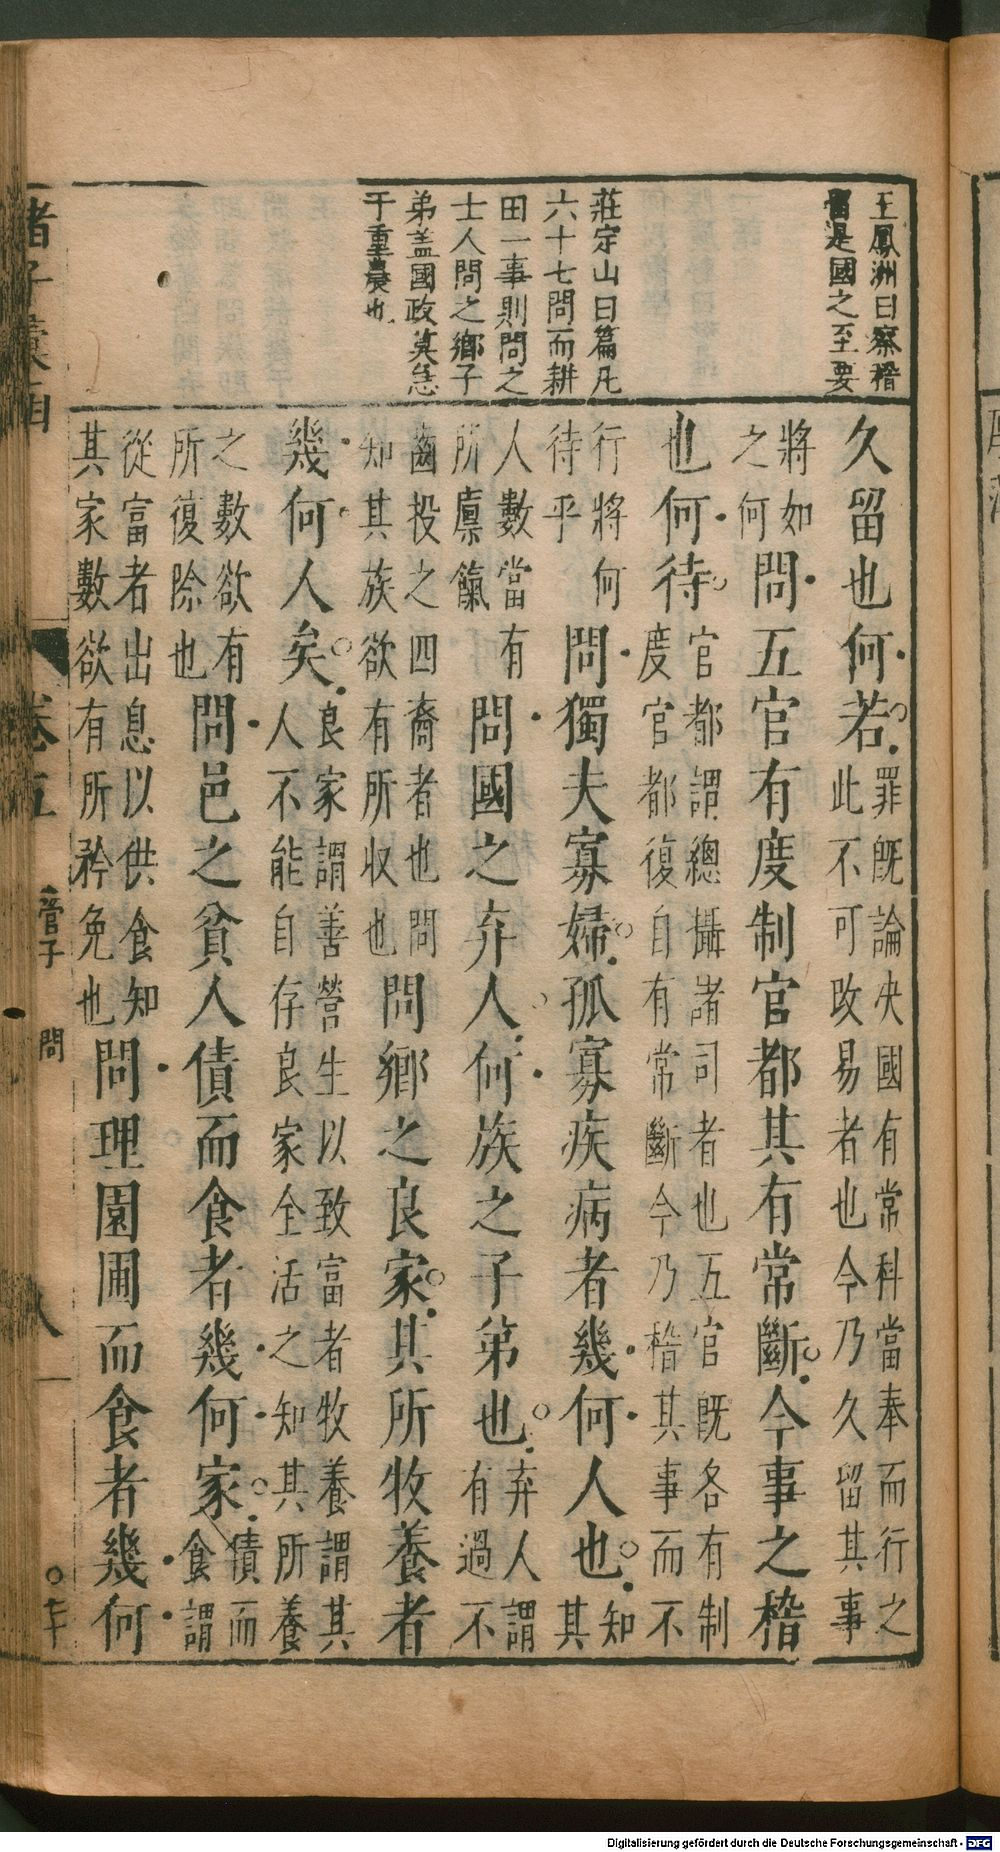 王鳳洲曰察稽
留是國之至要
莊定山曰篇凡
六十七問而耕
田一事則問之
士人問之鄉子
弟盖國政莫急
于重農也
久留也何若罪既論决國有常科當奉而行之
此不可改易者也今乃久留其事
將如
之何問五官有度制官都其有常斷今事之稽
也何待官都謂總攝諸司者也五官既各有制
度官都復自有常斷今乃稽其事而不
行將何
待乎問獨夫寡婦孤寡疾病者幾何人也知
其
人數當有
所廪餼問國之弃人何族之子弟也弃人謂
有過不
齒投之四裔者也問
知其族欲有所收也問鄉之良家其所牧養者
幾何人矣良家謂善營生以致富者牧養謂其
人不能自存良家全活之知其所養
之數欲有
所復除也問邑之貧人債而食者幾何家債而
食謂
從富者出息以供食知
其家數欲有所矜免也問理園圃而食者幾何
諸子彙函
卷五
管子
問
八
Digitalisierung gefördert durch die Deutsche Forschungsgemeinschaft - DFG